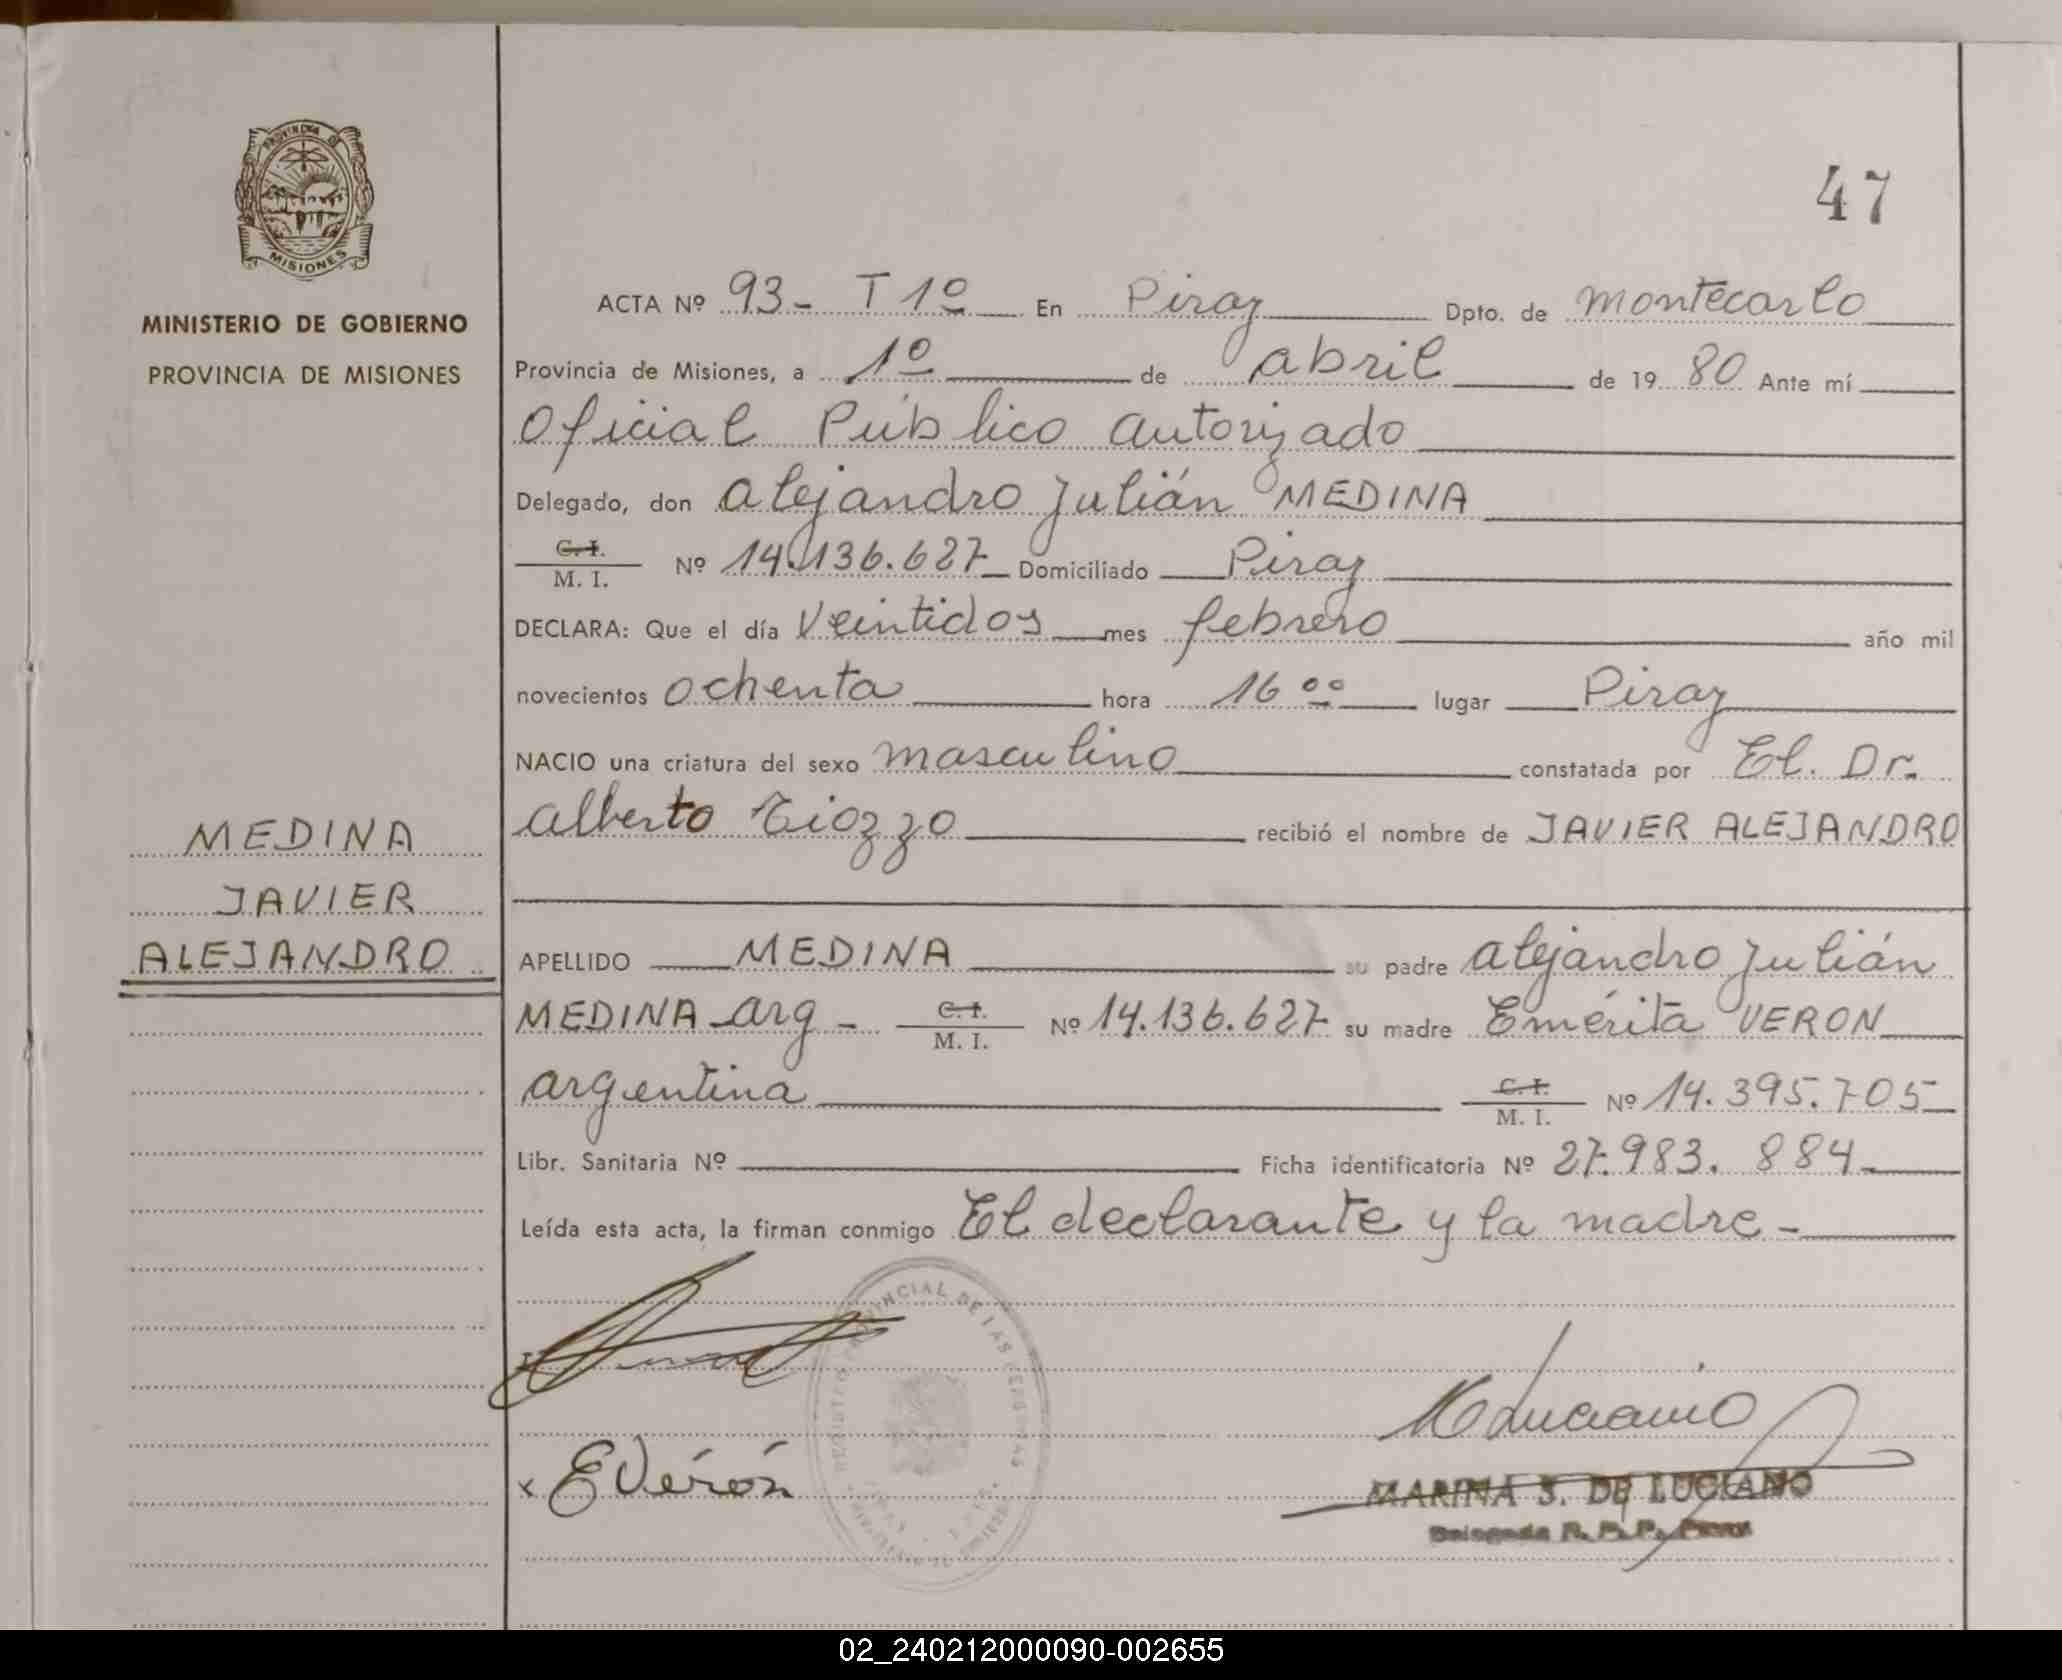 PROVINCIA DE
MISIONES
MINISTERIO DE GOBIERNO
PROVINCIA DE MISIONES
MEDINA
JAVIER
ALEJANDRO
47
ACTA Nº 93- T 1º En Piray Dpto. de Montecarlo
Provincia de Misiones, a 1º de abril de 1980 Ante mí
Oficial Público Autorizado
Delegado, don Alejandro Julián MEDINA
C. I. M. I. Nº 14.136.627 Domiciliado Piray
DECLARA: Que el día Veintidos mes febrero año mil
novecientos ochenta hora 16 ºº lugar Piray
NACIO una criatura del sexo masculino constatada por El. Dr.
Alberto Tiozzo recibió el nombre de JAVIER ALEJANDRO
APELLIDO MEDINA su padre Alejandro Julián
MEDINA - arg - C. I. M. I. Nº 14.136.627 su madre Emérita VERON
argentina C. I. M. I. Nº 14.395.705
Libr. Sanitaria Nº Ficha identificatoria Nº 27.983.884-
Leída esta acta, la firman conmigo El declarante y la madre -
REGISTRO PROVINCIAL DE LAS PERSONAS
x EVerón
MARINA S. DE LUCIANO
Delegada R. P. P. Piray
02_240212000090-002655